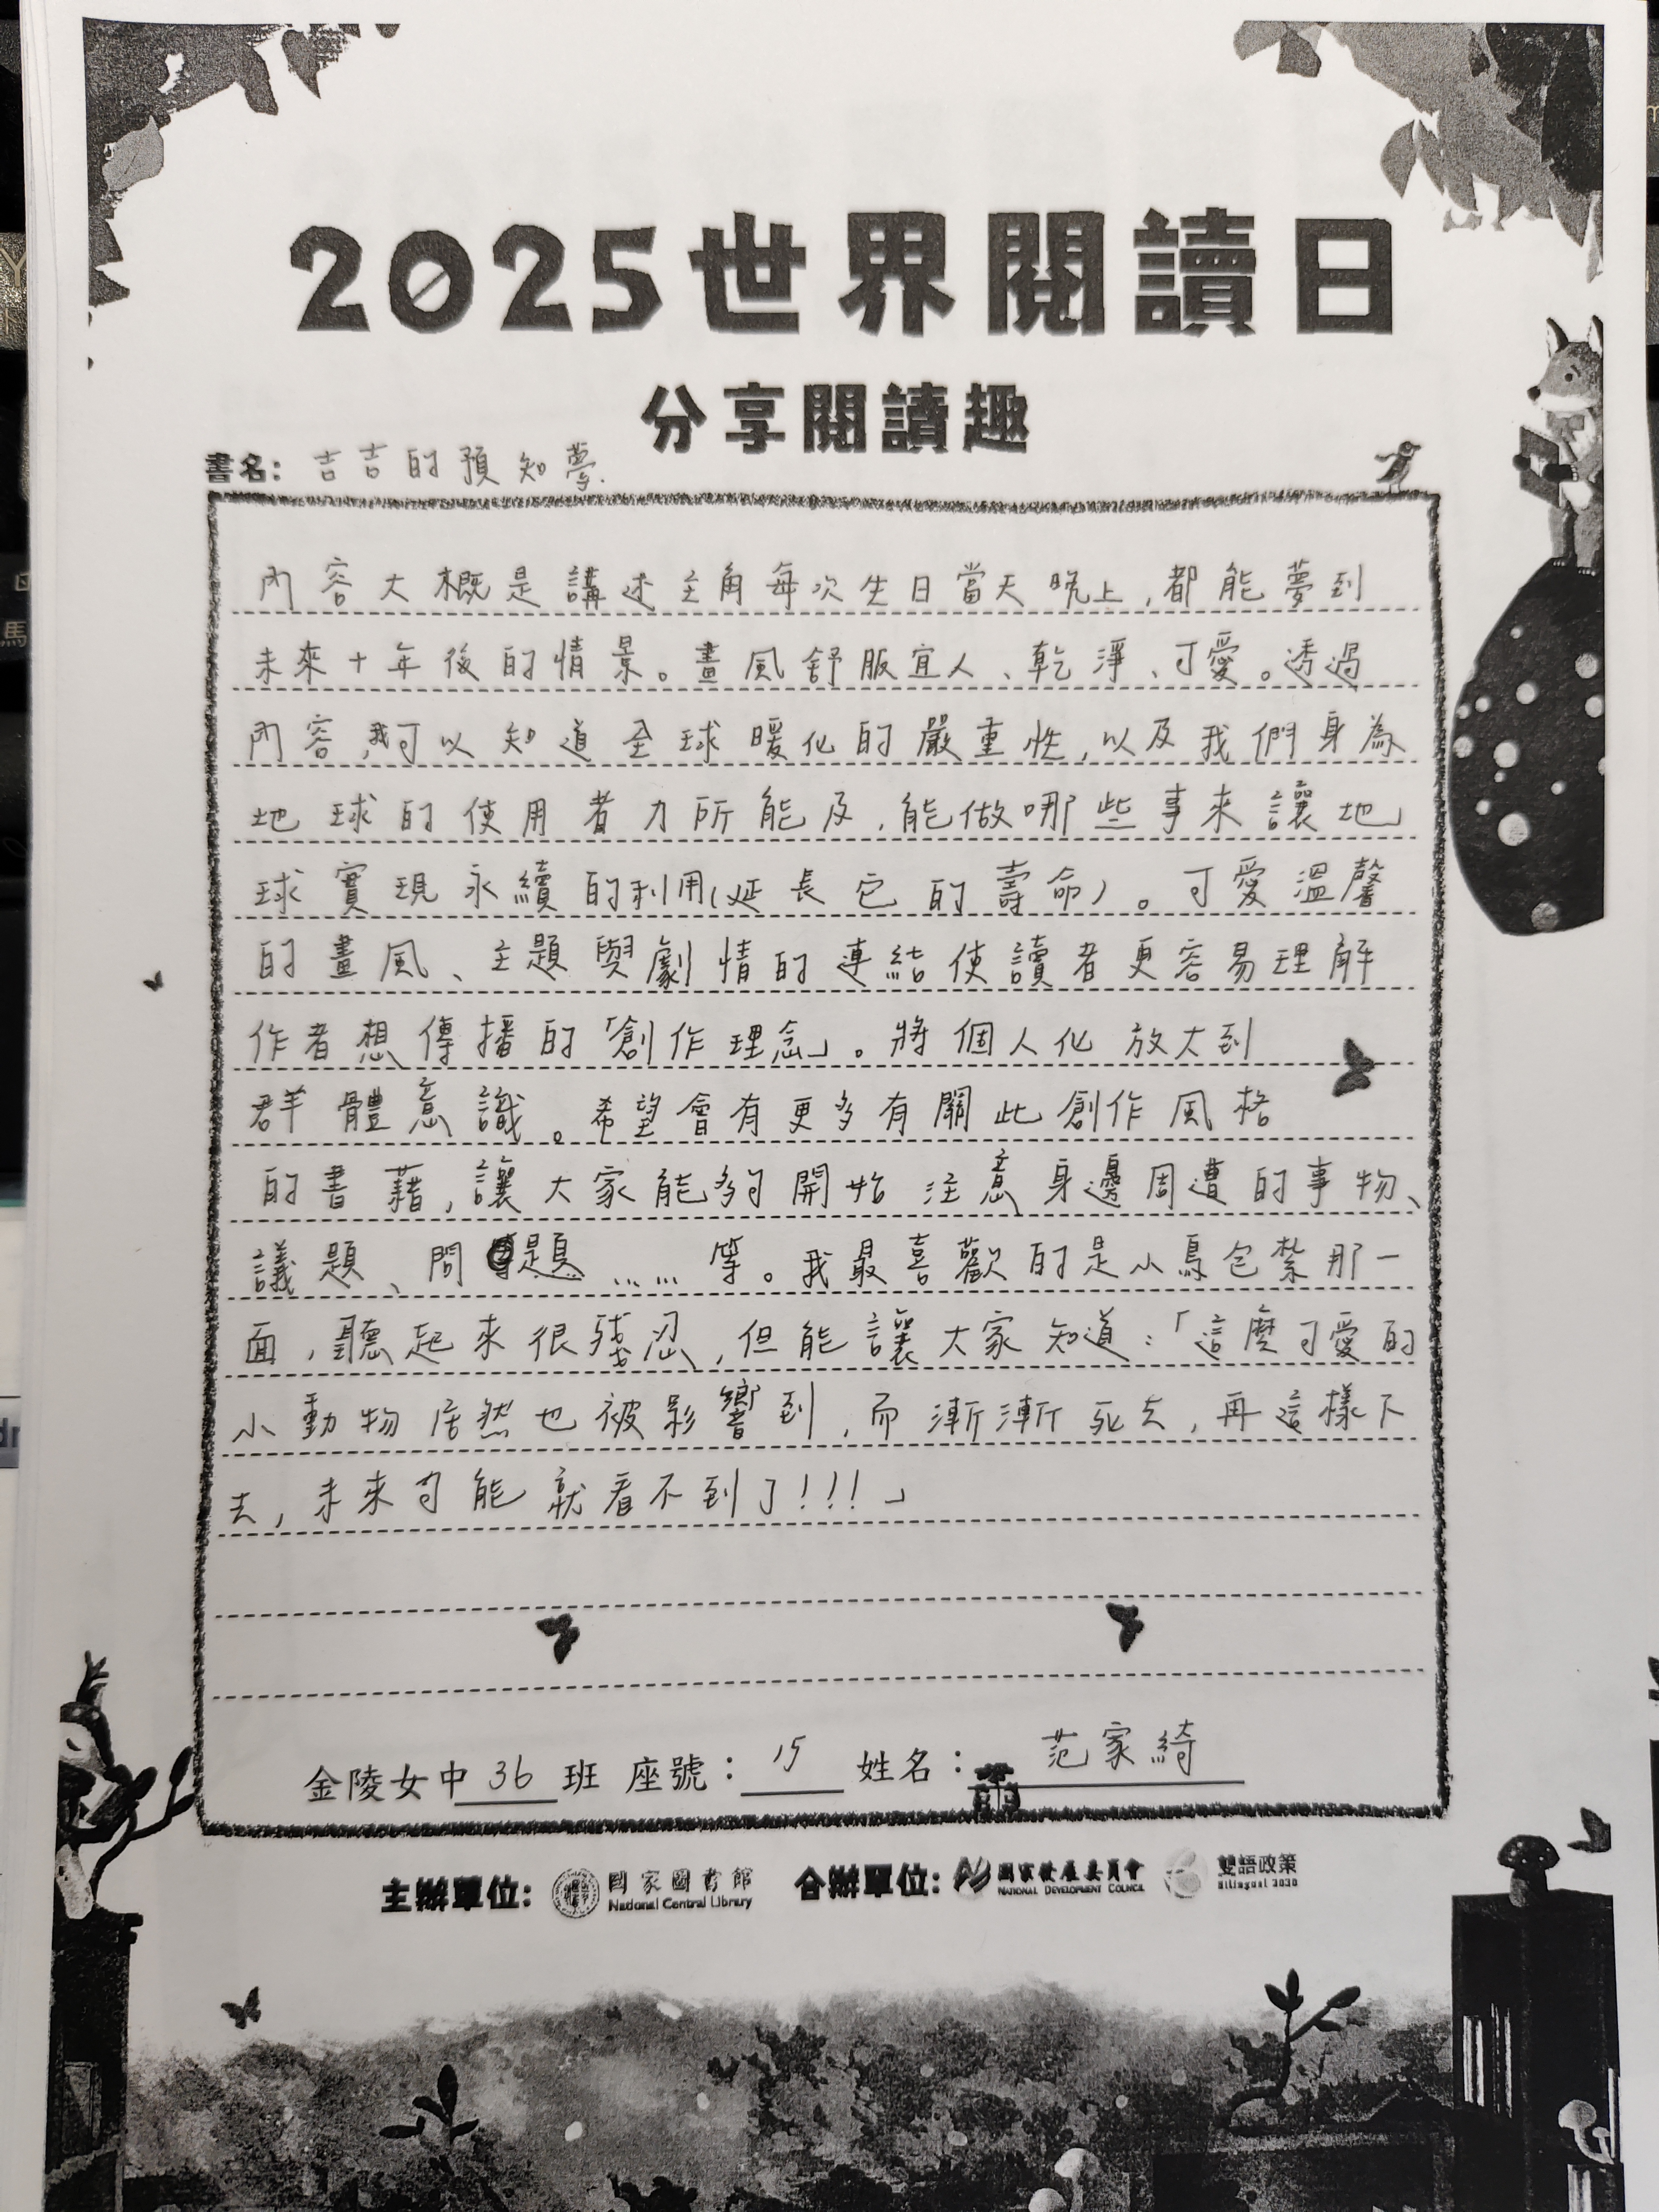 2025世界閱讀日
分享閱讀趣
書名：吉吉的預知夢.
內容大概是講述主角每次生日當天晚上,都能夢到
未來十年後的情景。畫風舒服宜人、乾淨、可愛。透過
內容,我可以知道全球暖化的嚴重性,以及我們身為
地球的使用者力所能及,能做哪些事來讓地
球實現永續的利用(延長它的壽命)。可愛溫馨
的畫風、主題與劇情的連結使讀者更容易理解
作者想傳播的「創作理念」。將個人化放大到
群體意識。希望會有更多有關此創作風格
的書藉,讓大家能夠開始注意身邊周遭的事物、
議題、問題……等。我最喜歡的是小鳥包紮那一
面,聽起來很殘忍,但能讓大家知道:「這麼可愛的
小動物居然也被影響到,而漸漸死去,再這樣下
去,未來可能就看不到了!!!」
金陵女中36班 座號：15 姓名：范家綺
主辦單位: 國家圖書館 合辦單位: 國家發展委員會 雙語政策
National Central Library NATIONAL DEVELOPMENT COUNCIL Bilingual 2030